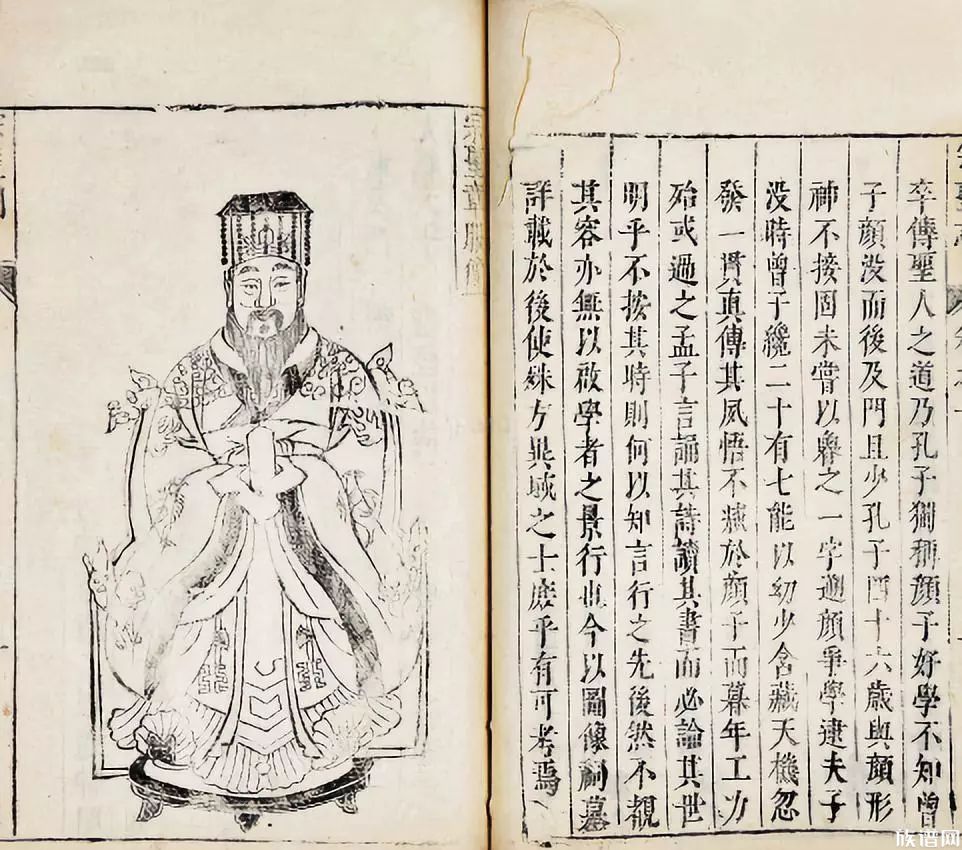 卒傳聖人之道乃孔子獨稱顏子好學不知曾
子顏没而後及門且少孔子四十六歲與顏形
神不接固未嘗以魯之一字遜顏爭學逮夫子
没時曾子纔二十有七能以幼少含藏天機忽
發一貫真傳其夙悟不殊於顏子而暮年工力
殆或過之孟子言誦其詩讀其書而必論其世
明乎不按其時則何以知言行之先後然不覩
其容亦無以啟學者之景行也今以圖像祠墓
詳載於後使殊方異域之士庶乎有可考焉
宗聖章服像
族谱网